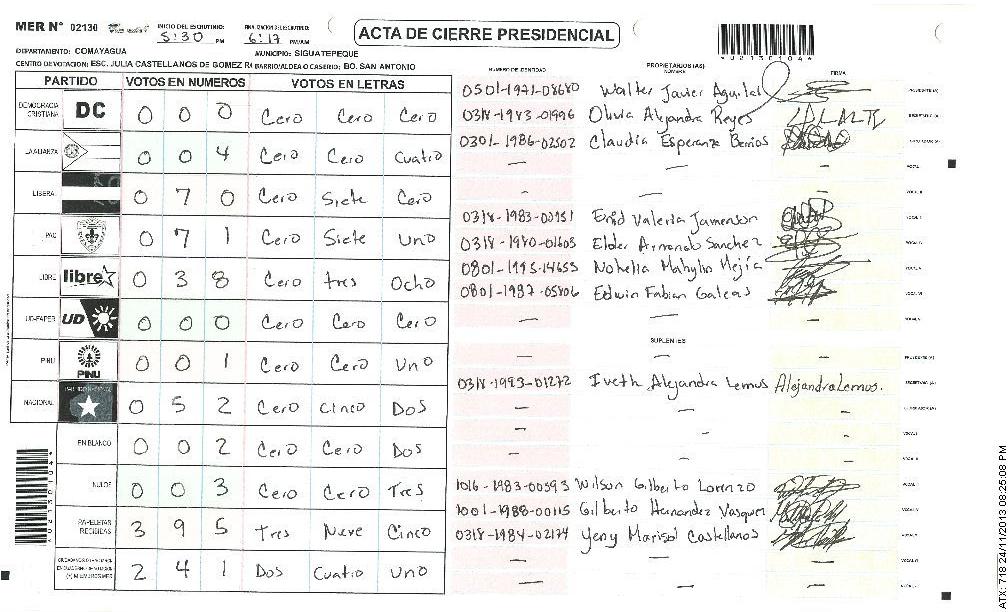 MER N° 02130 INICIO DEL ESCRUTINIO: 5:30 PM FINALIZACION DEL ESCRUTINIO: 6:17 PM/AM
ACTA DE CIERRE PRESIDENCIAL
*02130104*
DEPARTAMENTO: COMAYAGUA MUNICIPIO: SIGUATEPEQUE
CENTRO DE VOTACION: ESC. JULIA CASTELLANOS DE GOMEZ R BARRIO/ALDEA O CASERIO: BO. SAN ANTONIO
PARTIDO VOTOS EN NUMEROS VOTOS EN LETRAS
DEMOCRACIA CRISTIANA DC 0 0 0 Cero Cero Cero
LA ALIANZA 0 0 4 Cero Cero Cuatro
LIBERAL 0 7 0 Cero Siete Cero
PAC 0 7 1 Cero Siete Uno
LIBRE libre 0 3 8 Cero tres Ocho
UD-FAPER UD 0 0 0 Cero Cero Cero
PINU PINU 0 0 1 Cero Cero Uno
NACIONAL 0 5 2 Cero Cinco Dos
EN BLANCO 0 0 2 Cero Cero Dos
NULOS 0 0 3 Cero Cero Tres
PAPELETAS RECIBIDAS 3 9 5 Tres Nueve Cinco
2 4 1 Dos Cuatro Uno
NUMERO DE IDENTIDAD PROPIETARIOS (AS) NOMBRE FIRMA
0501-1971-08680 Walter Javier Aguilar
0318-1983-01996 Olivia Alejandra Reyes
0301-1986-02502 Claudia Esperanza Berrios
— — — VOCAL I
- — — VOCAL II
0318-1983-00151 Enid Valeria
0318-1980-01603 Elder Armando Sanchez
0801-1995-14653 Nohelia Mahylin Mejía
0801-1987-05806 Edwin Fabian Galeas
SUPLENTES
0318-1993-01272 Iveth Alejandra Lemus Alejandra Lemus.
1016-1983-00593 Wilson Gilberto Lorenzo
1001-1988-00115 Gilberto Hernandez Vasquez
0318-1984-02174 Yeny Marisol Castellanos
*02130104*
ATX: 718 24/11/2013 08:25:08 PM